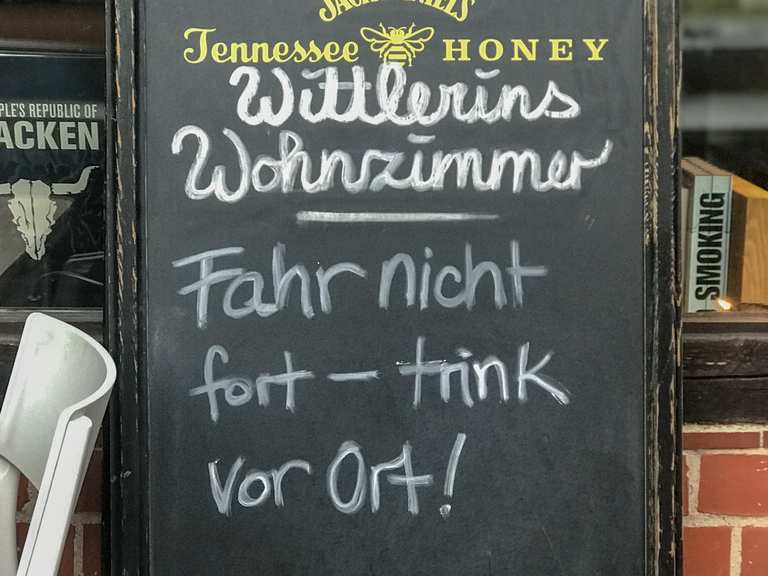 JACK DANIEL'S
Tennessee HONEY
Wittlerins
Wohnzimmer
Fahr nicht
fort – trink
vor Ort!
PLE'S REPUBLIC OF
ACKEN
SMOKING